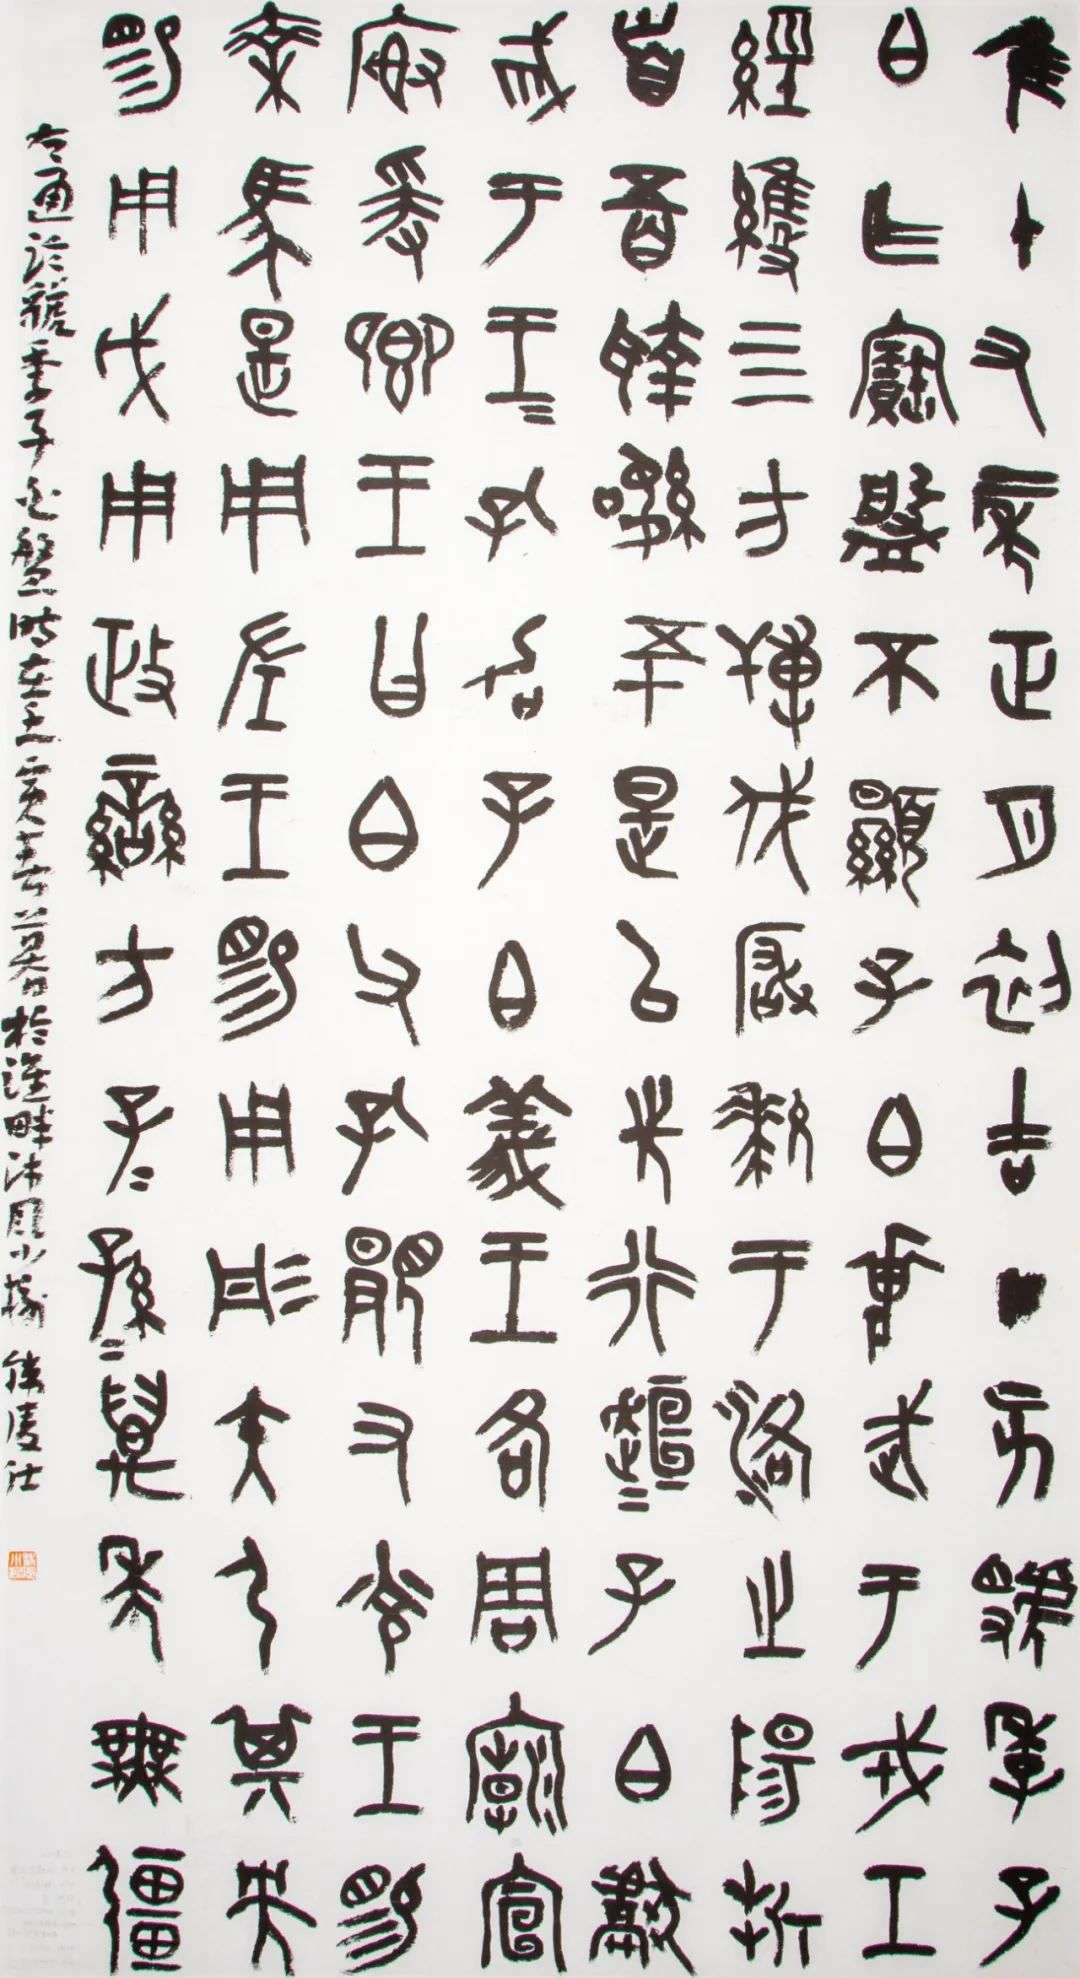 隹十又二年正月初吉丁亥虢季子
白乍寶盤不顯子白壯武于戎工
經維四方搏伐玁狁于洛之陽折
首五百執訊五十是以先行桓桓子白獻
馘于王王孔加子白義王各周廟宣
榭爰鄉王曰白父孔顯又光王易
乘馬是用左王易用彤矢弓其央
易用戉用政蠻方子子孫孫萬年無疆
右通臨虢季子白盤時在壬寅 暮於淮畔沐風小榭 慶仕